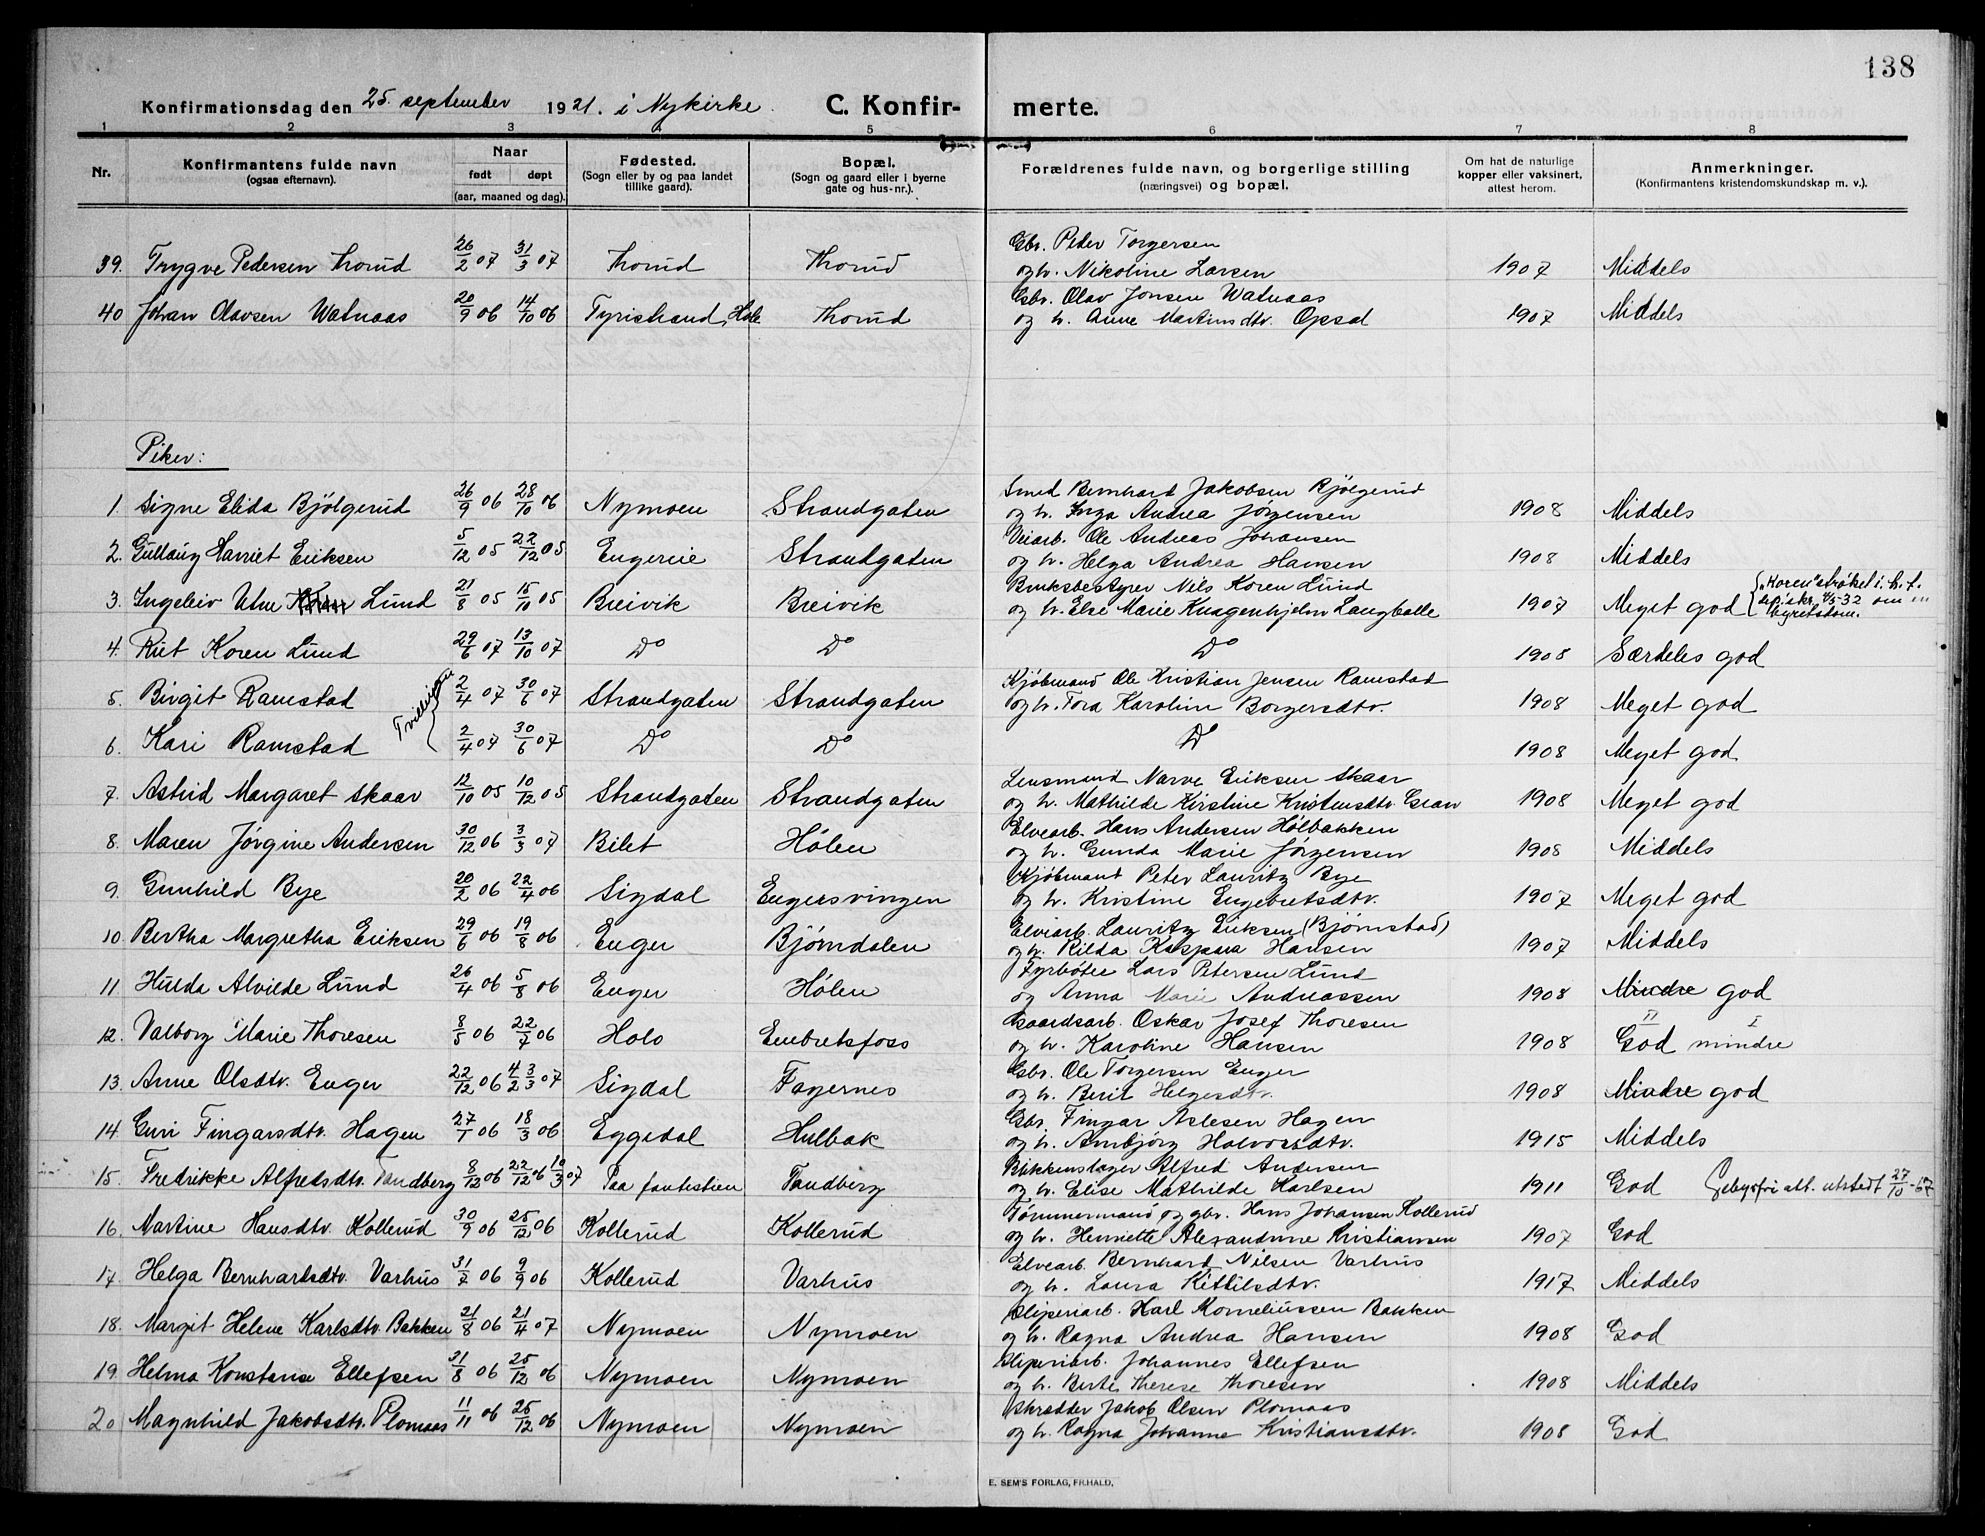 138
Konfirmationsdag den 25. september 1921. i Nykirke. C. Konfirmerte.
1 2 3 4 5 6 7 8
Nr. Konfirmantens fulde navn (ogsaa efternavn). Naar født døpt (aar, maaned og dag). Fødested. (Sogn eller by og paa landet tillike gaard). Bopæl. (Sogn og gaard eller i byerne gate og hus-nr.). Forældrenes fulde navn, og borgerlige stilling (næringsvei) og bopæl. Om hat de naturlige kopper eller vaksinert, attest herom. Anmerkninger. (Konfirmantens kristendomskundskap m. v.).
Gbr. Peter Torgersen
39. Trygve Pedersen Thorud 26/2 07 31/3 07 Thorud Thorud og h. Nikoline Larsen 1907 Middels
Gbr. Olav Jonsen Watnaas
40 Johan Olavsen Watnaas 20/9 06 14/10 06 Tyristrand, Hole Thorud og h. Anne Martinsdtr. Opsal 1907 Middels
Piker:
Smed Bernhard Jakobsen Bjölgerud
1. Signe Elida Bjölgerud 26/9 06 28/10 06 Nymoen Strandgaten og h. Inga Andrea Jørgensen 1908 Middels
Veiarb. Ole Andreas Johansen
2. Gullaug Harriet Eriksen 5/12 05 22/12 05 Engereie Strandgaten og h. Helga Andrea Hansen 1908 Middels
Bruksbestyrer Nils Koren Lund
3. Ingeleiv Utne Koren Lund 21/8 05 15/10 05 Breivik Breivik og h. Else Marie Knagenhjelm Langballe 1907 Meget god {"Koren" strøket i h. t. skr. 4/5-32 om byretsdom.
4. Riet Koren Lund 29/6 07 13/10 07 Do Do Do 1908 Særdeles god
Kjøbmand Ole Kristian Jensen Ramstad
5. Birgit Ramstad Tvillinger { 2/4 07 30/6 07 Strandgaten Strandgaten og h. Tora Karoline Borgersdtr. 1908 Meget god
6. Kari Ramstad 2/4 07 30/6 07 Do Do Do 1908 Meget god
Lensmand Narve Eriksen Skaar
7. Astrid Margaret Skaar 12/10 05 10/12 05 Strandgaten Strandgaten og h. Mathilde Kirstine Kristensdtr. Gran 1908 Meget god
Elvearb. Hans Andersen Hølbakken
8. Maren Jørgine Andersen 30/12 06 3/3 07 Bilet Hølen og h. Gunda Marie Jørgensen 1908 Middels
Kjøbmand Peter Lauritz Bye
9. Gunhild Bye 20/2 06 22/4 06 Sigdal Engersvingen og h. Kristine Engebretsdtr. 1907 Meget god
Elvearb. Lauritz Eriksen (Bjørnstad)
10. Bertha Margretha Eriksen 29/6 06 19/8 06 Enger Bjørndalen og h. Kaspara Hansen 1907 Middels
Fyrbøter Lars Petersen Lund
11 Hulda Alvilde Lund 26/4 06 5/8 06 Enger Hølen og Anna Marie Andreassen 1908 Mindre god
Gaardsarb. Oskar Josef Thoresen
12. Valborg Marie Thoresen 8/5 06 22/7 06 Holo Embretsfoss og h. Karoline Hansen 1908 II God I mindre
Gbr. Ole Torgersen Enger
13. Anne Olsdtr. Enger 22/12 06 4/2 3/3 07 Sigdal Fagernes og h. Berit Helgesdtr. 1908 Mindre god
Gbr. Fingar Aslesen Hagen
14. Guri Fingarsdtr. Hagen 27/1 06 18/3 06 Eggedal Hulbak og h. Ambjörg Halvorsdtr. 1915 Middels
Blikkenslager Alfred Andersen
15. Fredrikke Alfredsdtr. Tandberg 8/12 06 22/12 06 10/3 07 Paa fantestien Tandberg og h. Elise Mathilde Karlsen 1911 God Gebyrfri att. utstedt 27/10-67
Tømmermand og gbr. Hans Johansen Kollerud
16. Martine Hansdtr. Kollerud 30/9 06 25/12 06 Kollerud Kollerud og h. Henriette Alexandrine Kristiansen 1907 God
Elvearb. Bernhard Nilsen Varhus
17 Helga Bernhardsdtr. Varhus 31/7 06 9/9 06 Kollerud Varhus og h. Laura Kittilsdtr. 1917 Middels
Sliperiarb. Karl Korneliussen Bakken
18. Margit Helene Karlsdtr. Bakken 21/8 06 21/4 07 Nymoen Nymoen og h. Ragna Andrea Hansen 1908 God
Sliperiarb. Johannes Ellefsen
19. Helma Konstanse Ellefsen 31/8 06 25/12 06 Nymoen Nymoen og h. Berte Therese Thoresen 1908 Middels
Skrædder Jakob Olsen Plomaas
20 Magnhild Jakobsdtr. Plomaas 11/11 06 25/12 06 Nymoen Nymoen og h. Ragna Johanne Kristiansdtr. 1908 God
E. SEM'S FORLAG, FR.HALD.